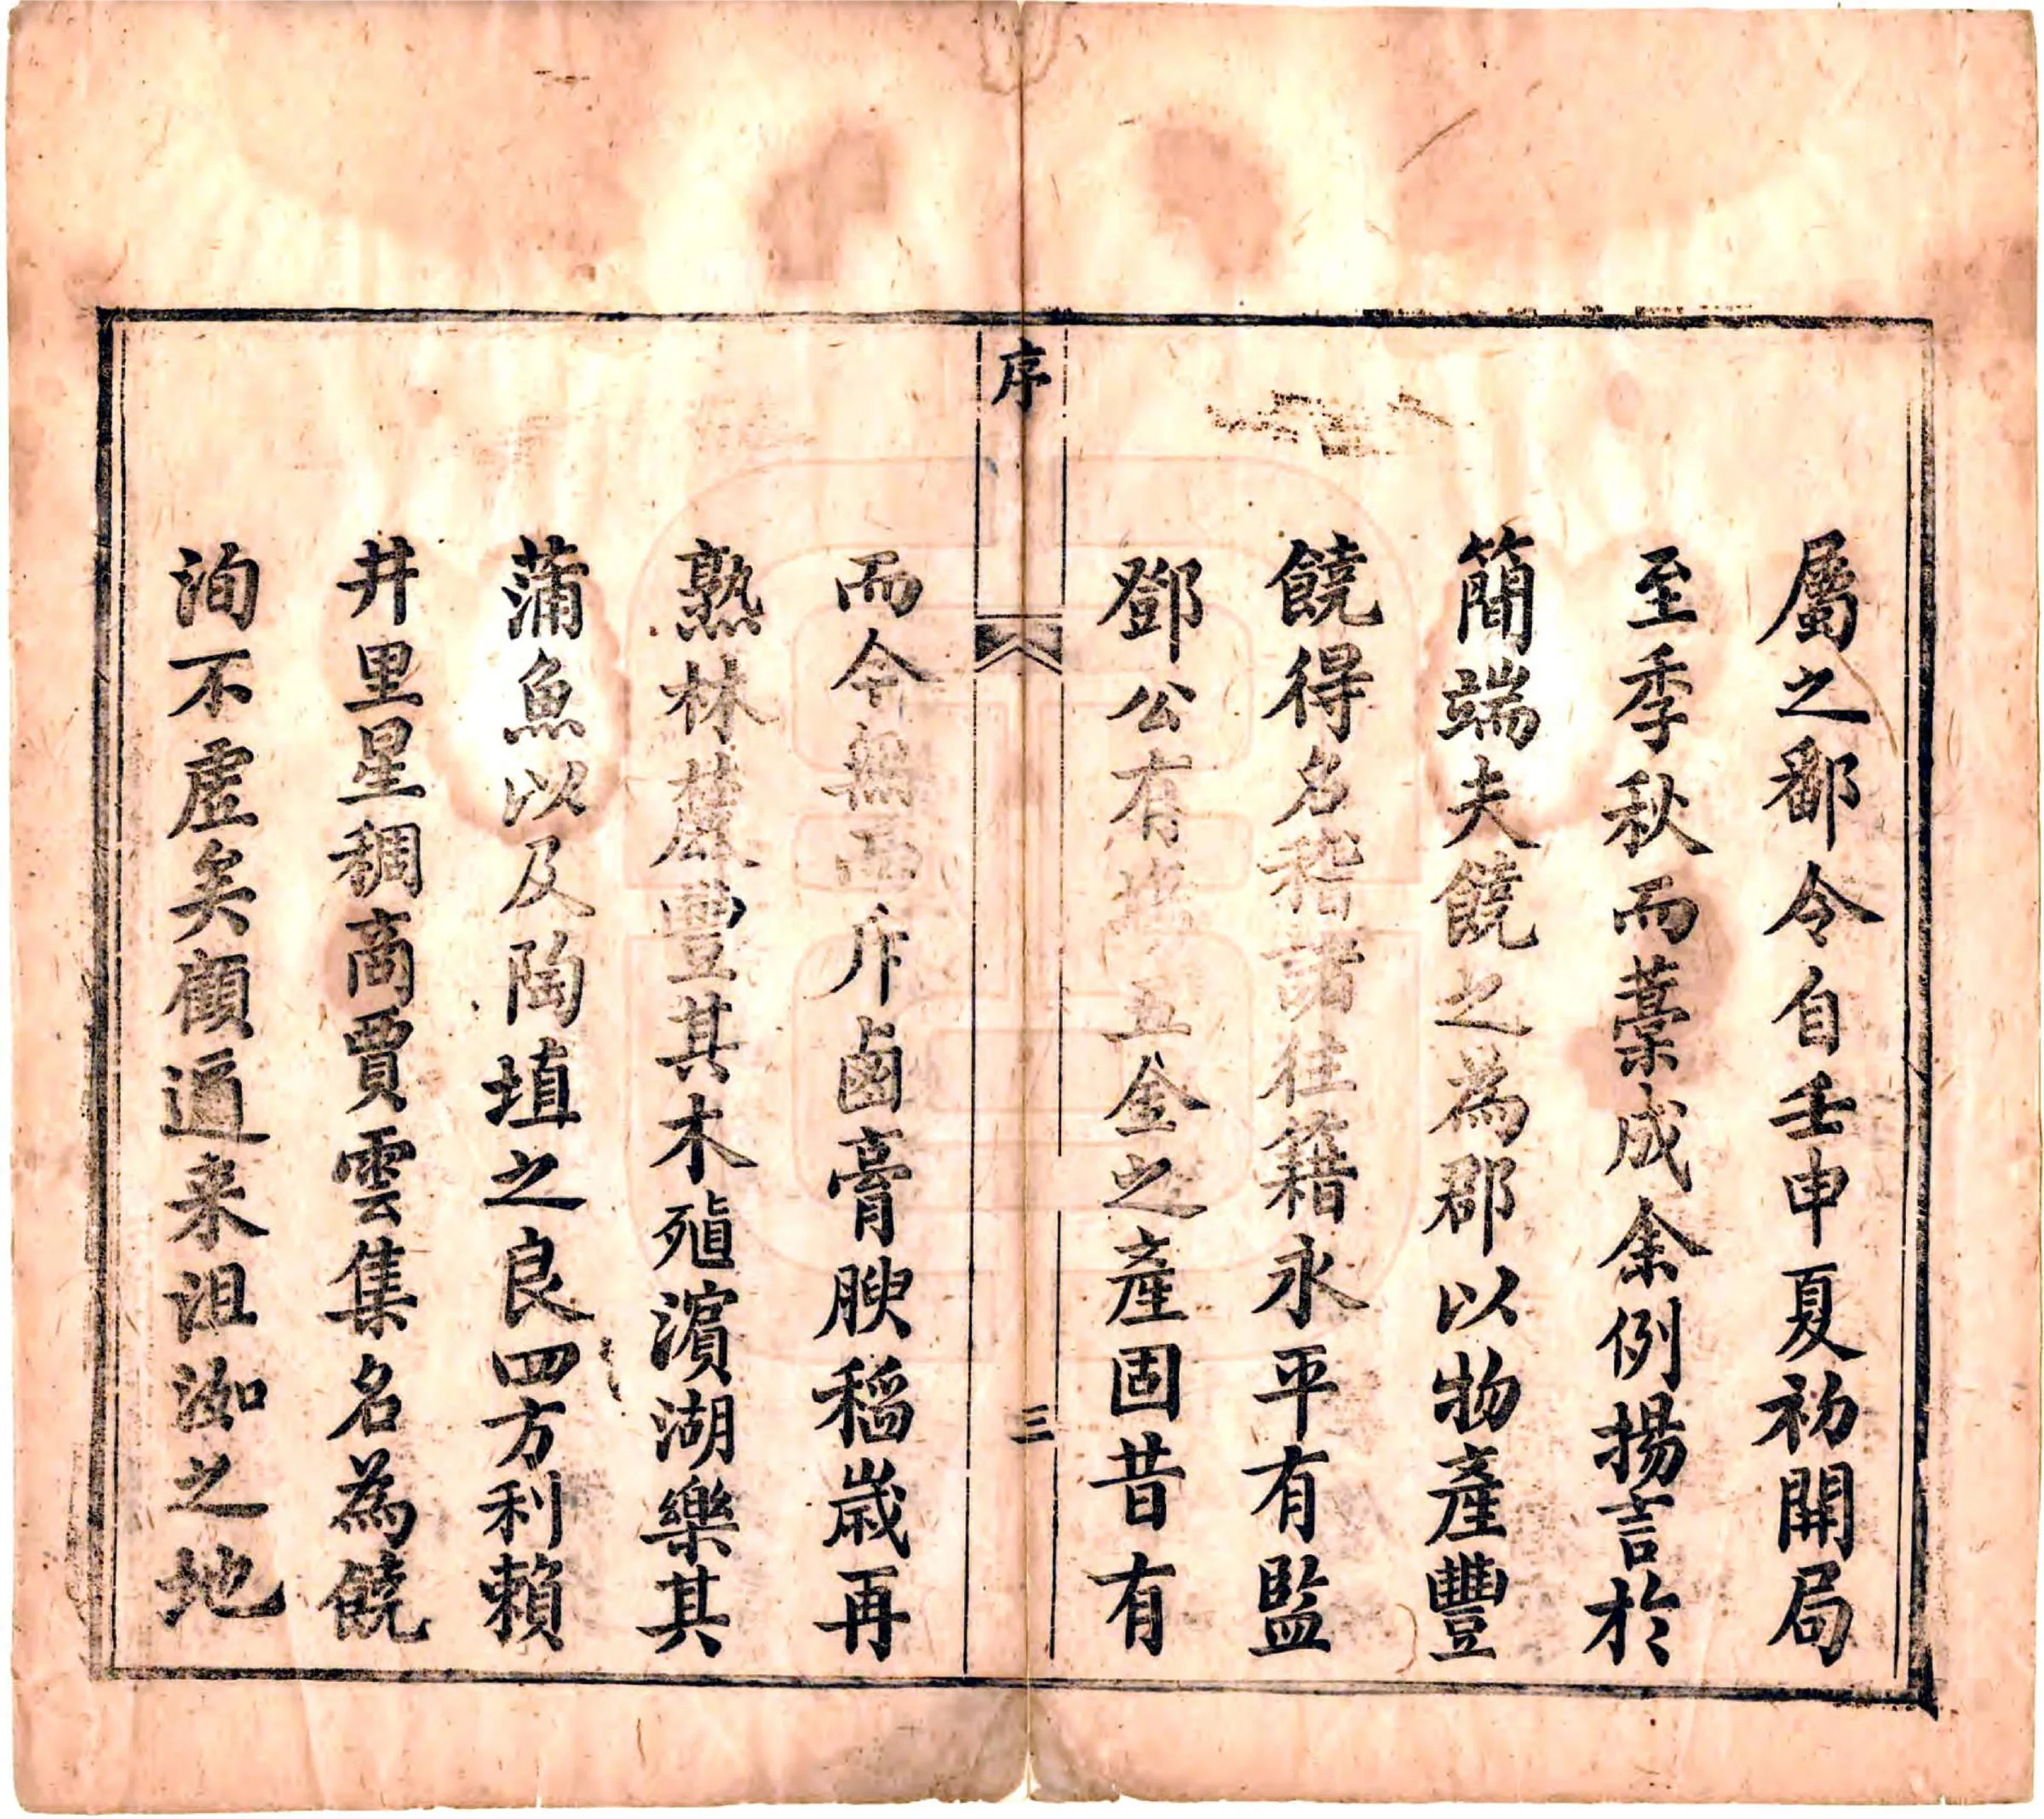 屬之鄱令自壬申夏初開局
至季秋而藳成余例揚言於
簡端夫饒之為郡以物產豐
饒得名稽諸往籍永平有監
鄧公有五金之產固昔有
序
三
而今無而斥鹵膏腴稻歲再
熟林麓豐其木殖濱湖樂其
蒲魚以及陶埴之良四方利賴
井里星稠商賈雲集名為饒
洵不虛矣顧邇来沮洳之地